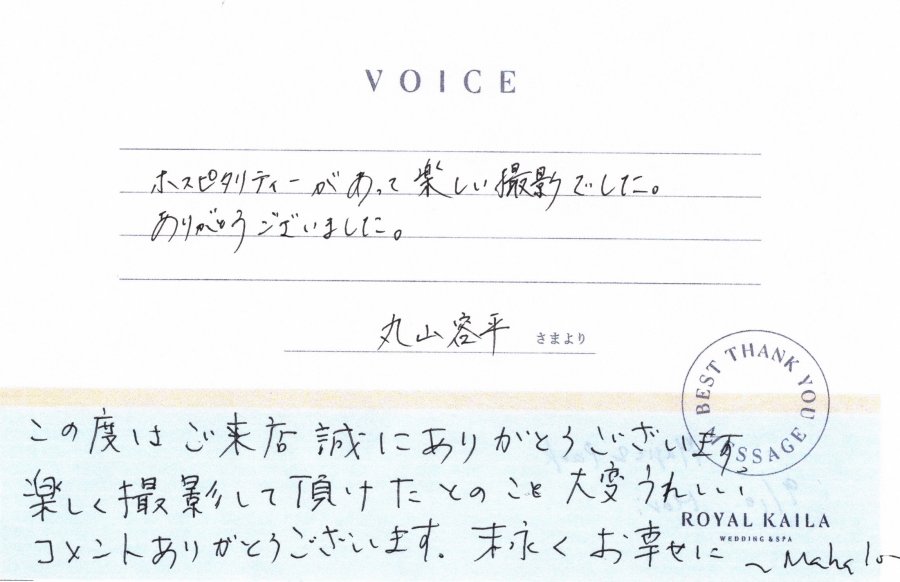 VOICE
ホスピタリティーがあって楽しい撮影でした。
ありがとうございました。
丸山容平 さまより
BEST THANK YOU MESSAGE
この度はご来店誠にありがとうございます。
楽しく撮影して頂けたとのこと大変うれしい
ROYAL KAILA
WEDDING & SPA
コメントありがとうございます。末永くお幸せに
~Mahalo~